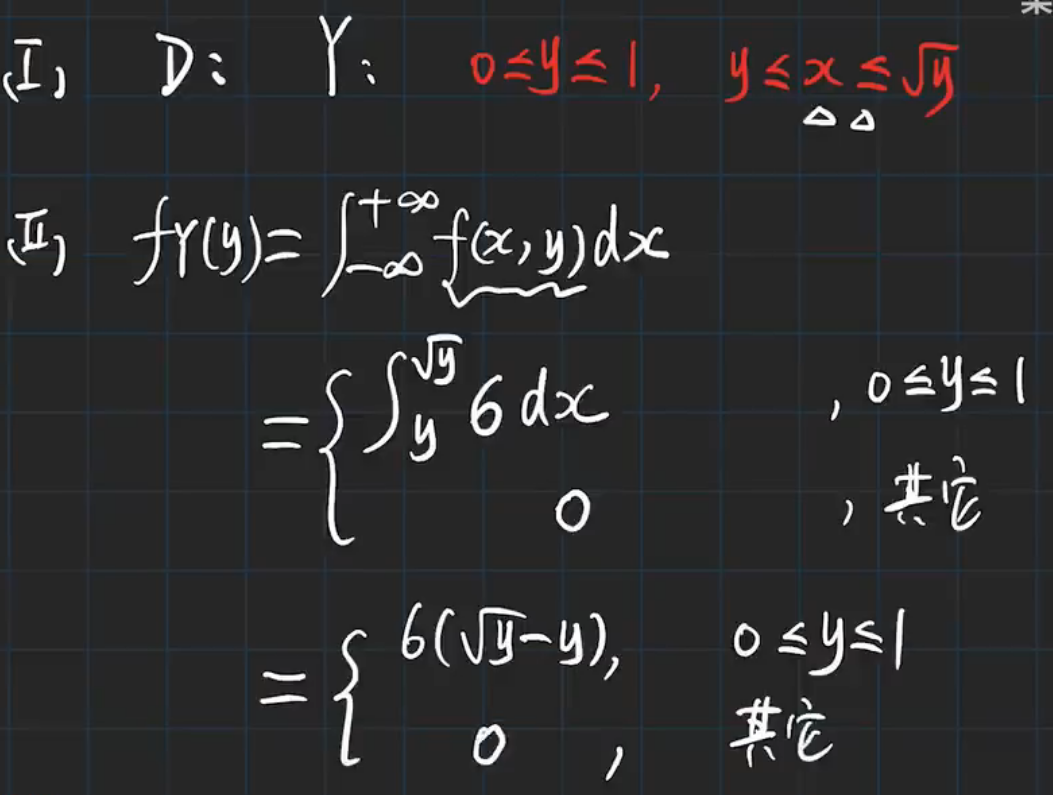 (I) D: Y: 0≤y≤1, y≤x≤√y
△ △
(II) fY(y)=∫_{-∞}^{+∞} f(x,y)dx
={ ∫_{y}^{√y} 6dx , 0≤y≤1
0 , 其它
={ 6(√y-y), 0≤y≤1
0 , 其它